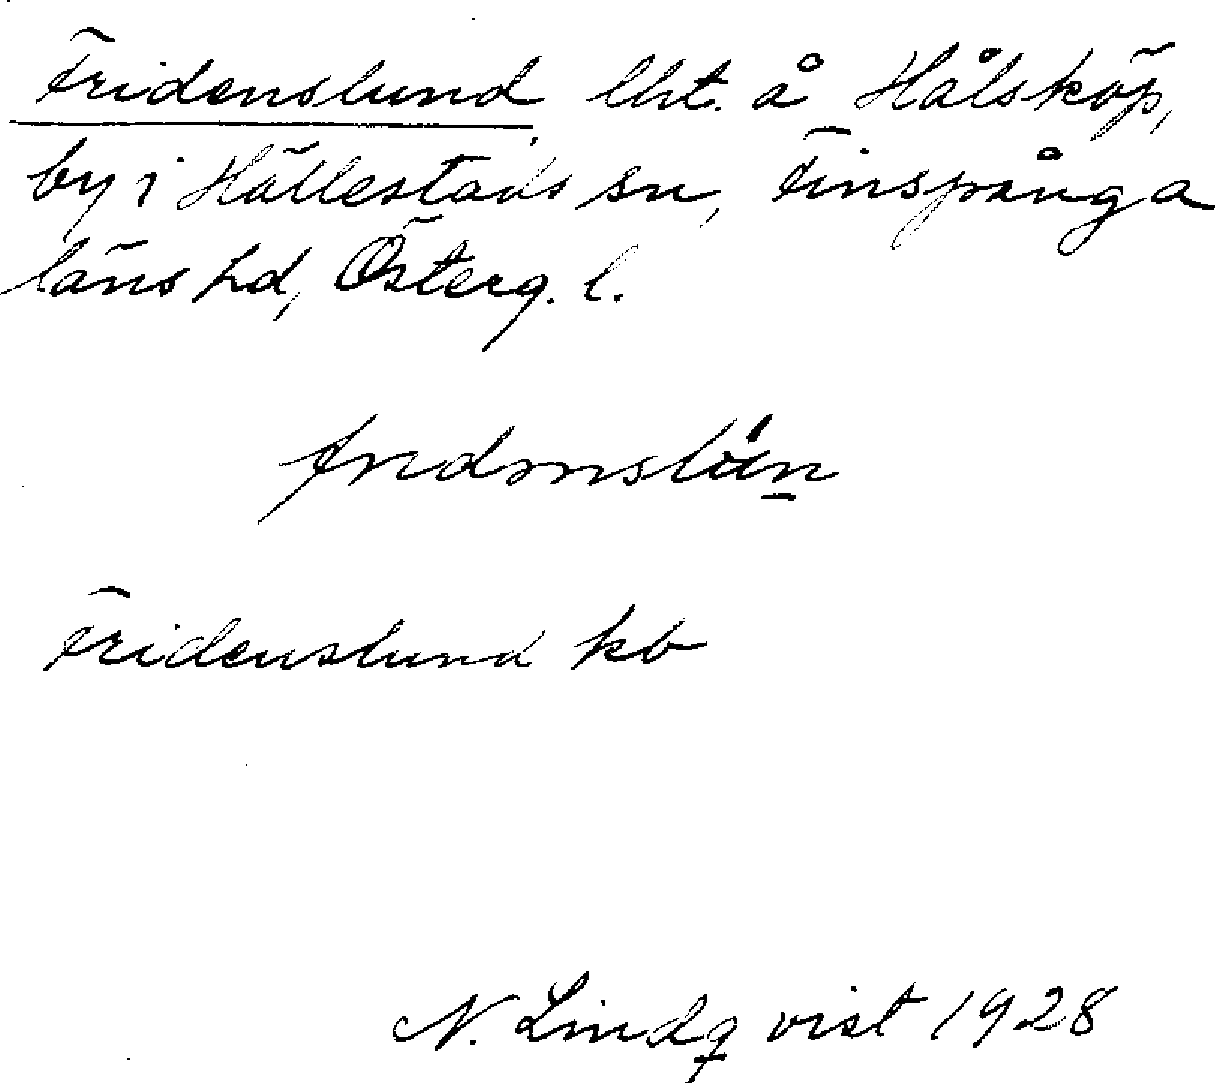 Fridenslund, lht. å Hålsköp,
by i Hällestads sn, Finspånga
läns hd, Österg. l.
Fridenslund kb
N. Lindqvist 1928